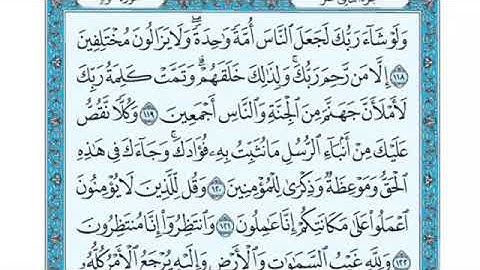 وَلَوْ شَآءَ رَبُّكَ لَجَعَلَ ٱلنَّاسَ أُمَّةً وَٰحِدَةً ۖ وَلَا يَزَالُونَ مُخْتَلِفِينَ
١١٨ إِلَّا مَن رَّحِمَ رَبُّكَ ۚ وَلِذَٰلِكَ خَلَقَهُمْ ۗ وَتَمَّتْ كَلِمَةُ رَبِّكَ
لَأَمْلَأَنَّ جَهَنَّمَ مِنَ ٱلْجِنَّةِ وَٱلنَّاسِ أَجْمَعِينَ ١١٩ وَكُلًّا نَّقُصُّ
عَلَيْكَ مِنْ أَنۢبَآءِ ٱلرُّسُلِ مَا نُثَبِّتُ بِهِۦ فُؤَادَكَ ۚ وَجَآءَكَ فِى هَٰذِهِ
ٱلْحَقُّ وَمَوْعِظَةٌ وَذِكْرَىٰ لِلْمُؤْمِنِينَ ١٢٠ وَقُل لِّلَّذِينَ لَا يُؤْمِنُونَ
ٱعْمَلُوا۟ عَلَىٰ مَكَانَتِكُمْ إِنَّا عَٰمِلُونَ ١٢١ وَٱنتَظِرُوٓا۟ إِنَّا مُنتَظِرُونَ
١٢٢ وَلِلَّهِ غَيْبُ ٱلسَّمَٰوَٰتِ وَٱلْأَرْضِ وَإِلَيْهِ يُرْجَعُ ٱلْأَمْرُ كُلُّهُۥ